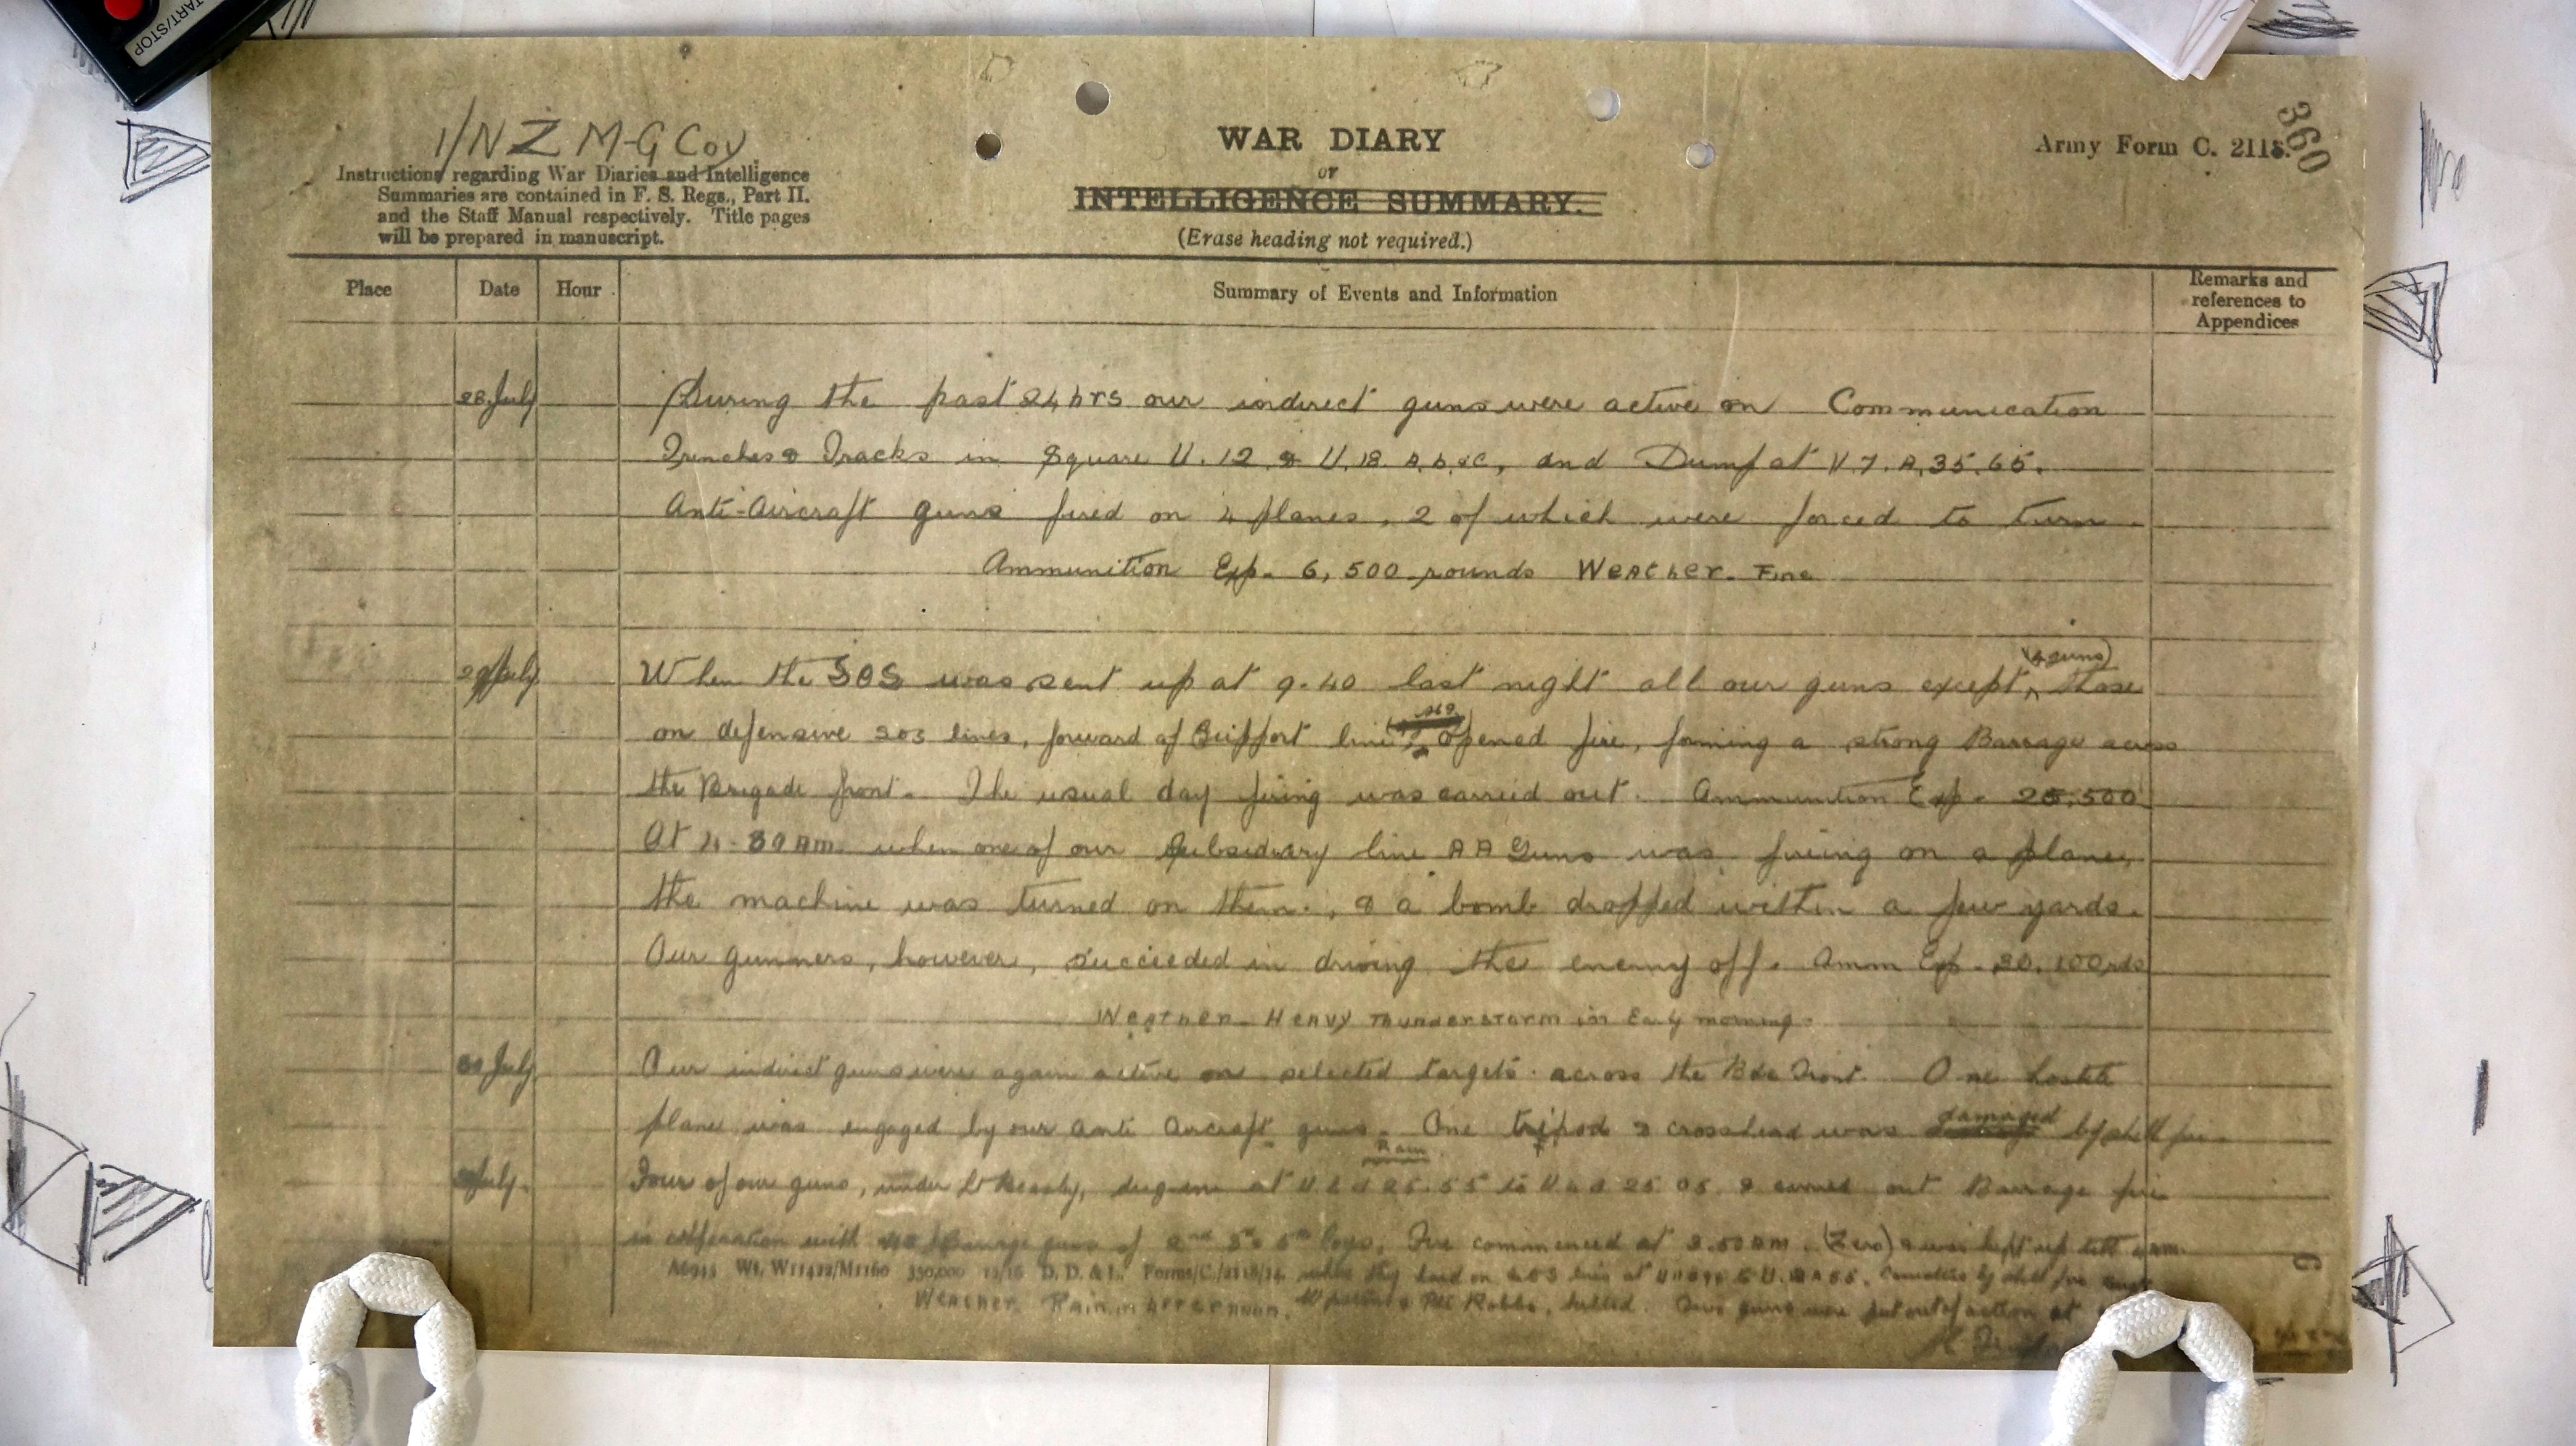 START/STOP
1/NZ M-G Coy
Instructions regarding War Diaries and Intelligence
Summaries are contained in F. S. Regs., Part II.
and the Staff Manual respectively. Title pages
will be prepared in manuscript.
WAR DIARY
or
INTELLIGENCE SUMMARY.
(Erase heading not required.)
Army Form C. 2118.
360
Place
Date
Hour
Summary of Events and Information
Remarks and
references to
Appendices
28 July
During the past 24 hrs our indirect guns were active on Communication
Trenches & Tracks in Square U.12 & U.18 A,b,&C, and Dump at V.7.A.35.65.
Anti-Aircraft guns fired on 4 planes, 2 of which were forced to turn.
Ammunition Exp. 6,500 rounds Weather. Fine
29 July
(4 guns)
When the SOS was sent up at 9.40 last night all our guns except those
on defensive sos lines, forward of Support line, opened fire, forming a strong Barrage across
the Brigade front. The usual day firing was carried out. Ammunition Exp. 25,500
At 4.30 AM. when one of our Subsidiary line AA Guns was firing on a plane,
the machine was turned on them, & a bomb dropped within a few yards.
Our gunners, however, succeeded in driving the enemy off. Amm Exp. 20,100 rds
Weather Heavy Thunderstorm in Early morning.
30 July
Our indirect guns were again active on selected targets across the Bde Front. One hostile
plane was engaged by our Anti Aircraft guns. One tripod & crosshead was damaged by shell fire.
Rain
July.
Four of our guns, under Lt dug in at 25.55 to 25 05 & carried out Barrage fire
in cooperation with Barrage guns of 2nd 3rd 5th Coys. Fire commenced at 3.50 AM. (Zero) & was kept up till AM.
A6945 Wt. W11422/M1160 350,000 12/16 D. D. & L. Forms/C./2118/14.
Weather. Rain in Afternoon. & Pte Robbs, killed. Two guns were put out of action at